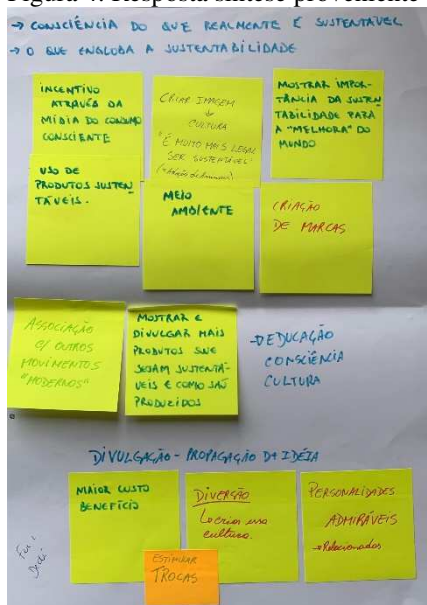 Figura 4. Resposta síntese proveniente
→ CONSCIÊNCIA DO QUE REALMENTE É SUSTENTÁVEL
→ O QUE ENGLOBA A SUSTENTABILIDADE
INCENTIVO
ATRAVÉS DA
MÍDIA DO CONSUMO
CONSCIENTE
CRIAR IMAGEM
CULTURA
"É MUITO MAIS LEGAL
SER SUSTENTÁVEL"
MOSTRAR IMPOR-
TÂNCIA DA SUSTEN
TABILIDADE PARA
A "MELHORA" DO
MUNDO
USO DE
PRODUTOS SUSTEN
TÁVEIS.
MEIO
AMBIENTE
CRIAÇÃO
DE MARCAS
ASSOCIAÇÃO
C/ OUTROS
MOVIMENTOS
"MODERNOS"
MOSTRAR E
DIVULGAR MAIS
PRODUTOS QUE
SEJAM SUSTENTÁ-
VEIS E COMO SÃO
PRODUZIDOS
→ EDUCAÇÃO
CONSCIÊNCIA
CULTURA
DIVULGAÇÃO - PROPAGAÇÃO DA IDÉIA
MAIOR CUSTO
BENEFÍCIO
DIVERSÃO
↳ criar uma
cultura.
PERSONALIDADES
ADMIRÁVEIS
→ Relacionados
ESTIMULAR
TROCAS